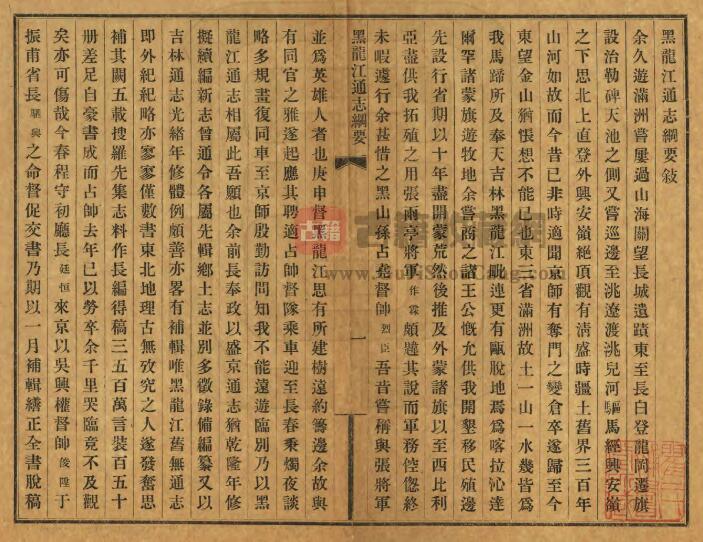 黑龍江通志綱要敍
余久遊滿洲嘗屢過山海關望長城遺蹟東至長白登龍岡遷旗
設治勒碑天池之側又嘗巡邊至洮遼渡洮兒河驅馬經興安嶺
之下思北上直登外興安嶺絕頂觀有淸盛時疆土舊界三百年
山河如故而今昔已非時適聞京師有奪門之變倉卒遂歸至今
東望金山猶悵想不能已也東三省滿洲故土一山一水幾皆爲
我馬蹄所及奉天吉林黑龍江毗連更有甌脫地焉爲喀拉沁達
爾罕諸蒙旗遊牧地余嘗商之諸王公慨允供我開墾移民殖邊
先設行省期以十年盡開蒙荒然後推及外蒙諸旗以至西比利
亞盡供我拓殖之用張兩亭將軍作霖頗韙其說而軍務倥偬終
未暇遑行余甚惜之黑山孫占鼇督帥烈臣吾昔嘗稱與張將軍
黑龍江通志綱要
一
並爲英雄人者也庚申督黑龍江思有所建樹遠約籌邊余故與
有同官之雅遂起應其聘適占帥督隊乘車迎至長春秉燭夜談
略多規畫復同車至京師殷勤訪問知我不能遠遊臨別乃以黑
龍江通志相屬此吾願也余前長奉政以盛京通志猶乾隆年修
擬續編新志曾通令各屬先輯鄉土志並別多徵錄備編纂又以
吉林通志光緖年修體例頗善亦畧有補輯唯黑龍江舊無通志
即外紀紀略亦寥寥僅數書東北地理古無攷究之人遂發奮思
補其闕五載搜羅先集志料作長編得稿三五百萬言裝百五十
册差足自豪書成而占帥去年已以勞卒余千里哭臨竟不及觀
矣亦可傷哉今春程守初廳長廷恒來京以吳興權督帥俊陞于
振甫省長駟興之命督促交書乃期以一月補輯繕正全書脫稿
古籍
古籍收藏網